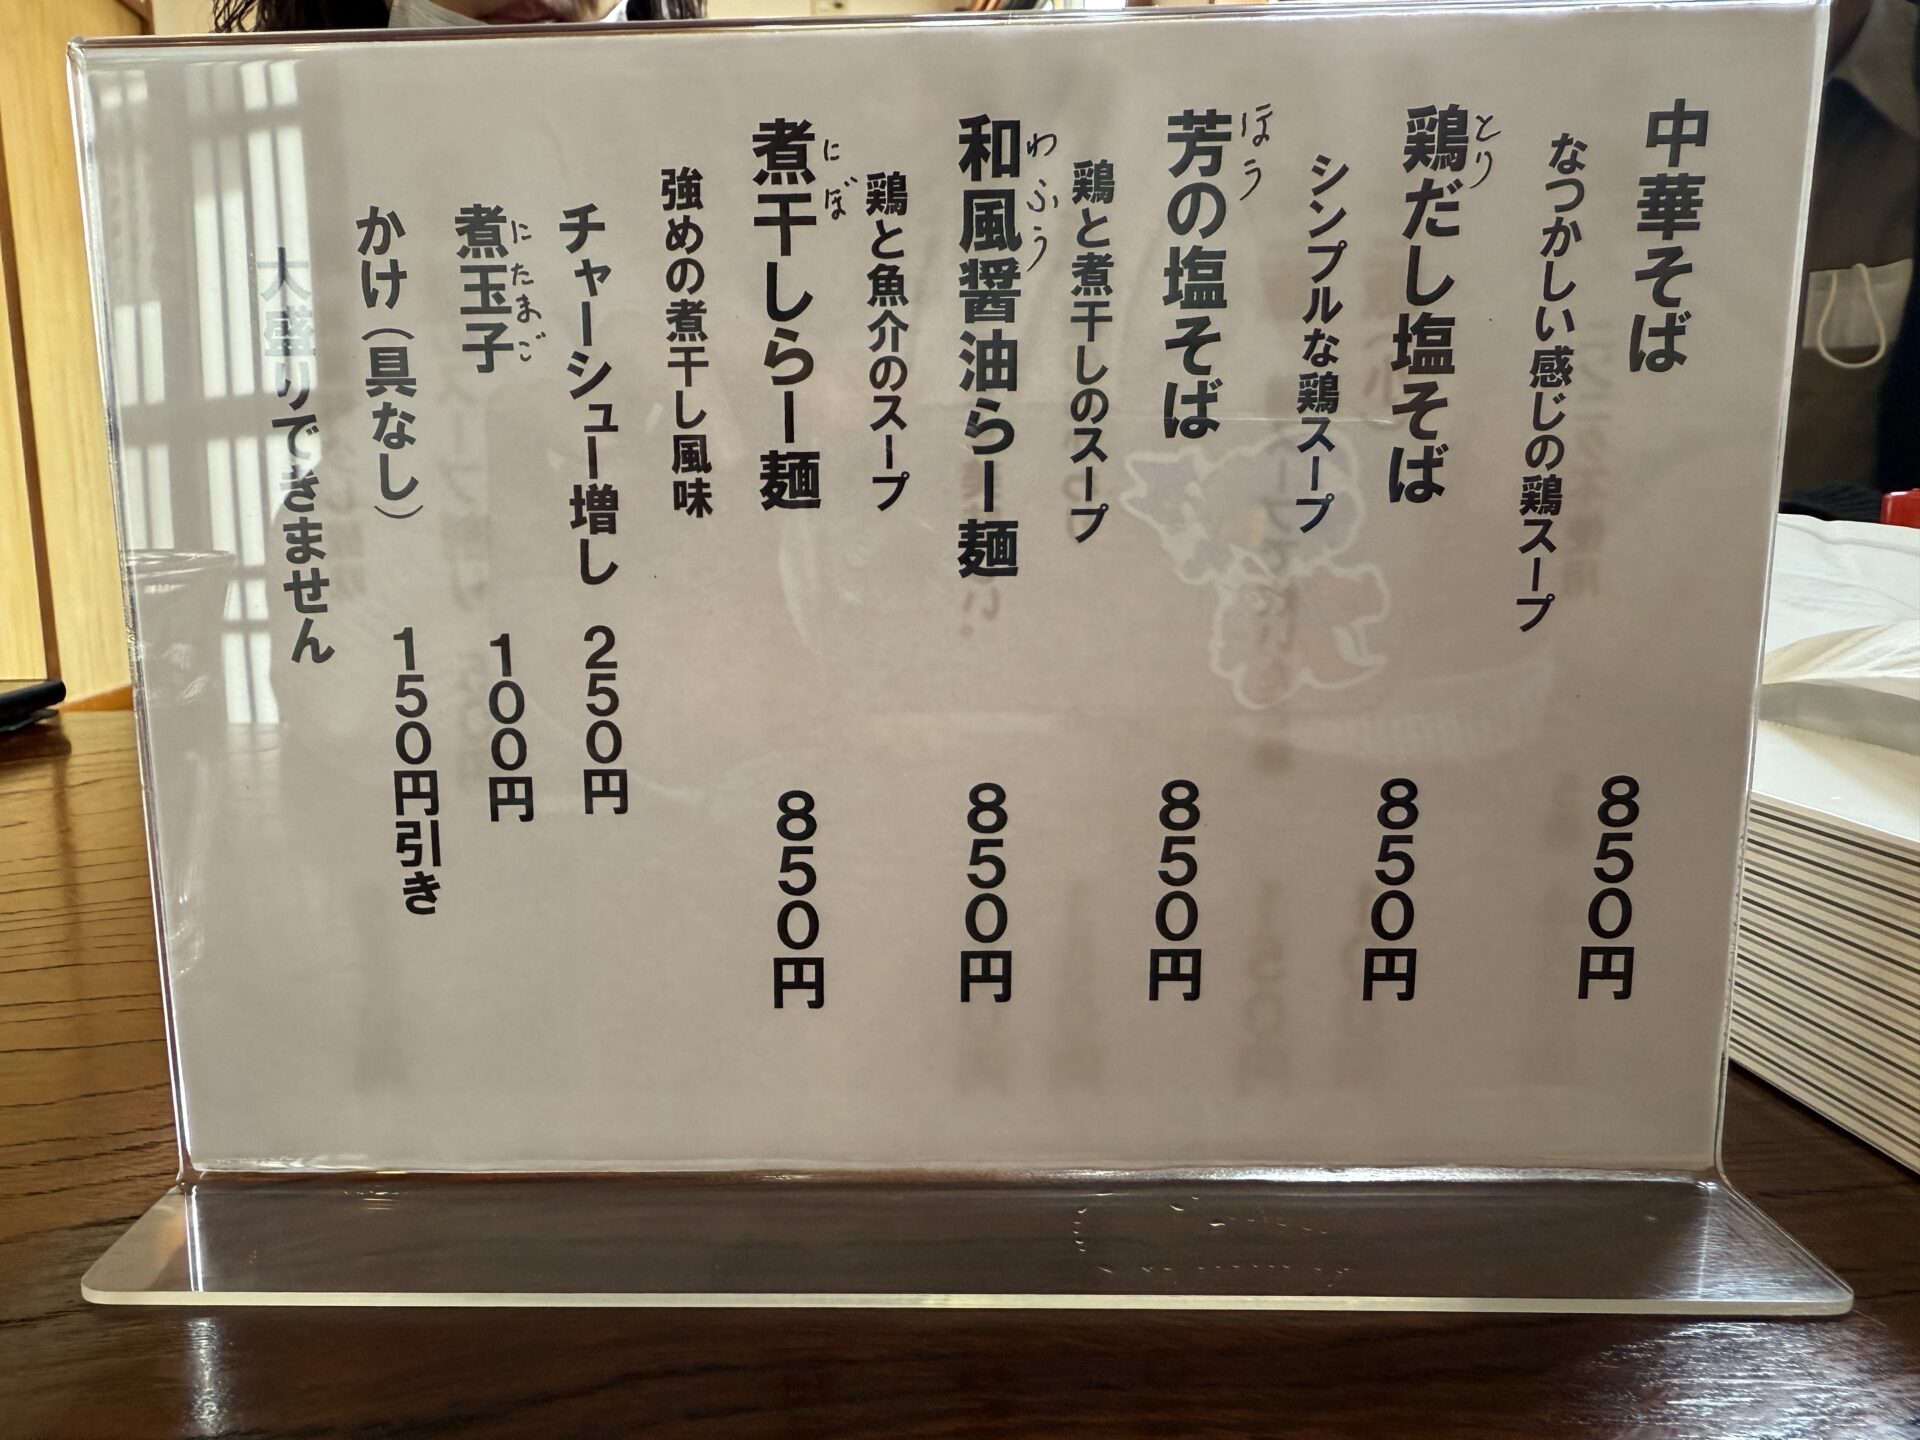 中華そば 850円
なつかしい感じの鶏スープ
鶏だし塩そば 850円
とり
シンプルな鶏スープ
芳の塩そば 850円
ほう
鶏と煮干しのスープ
和風醤油らー麺 850円
わふう
鶏と魚介のスープ
煮干しらー麺 850円
にぼ
強めの煮干し風味
チャーシュー増し 250円
煮玉子 100円
にたまご
かけ（具なし） 150円引き
大盛りできません